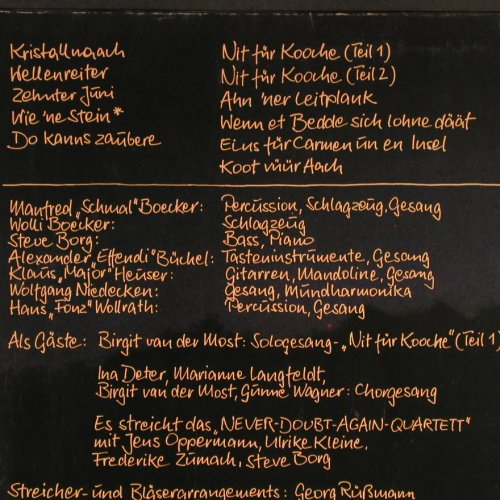 Kristallnaach
Wellenreiter
Zehnter Juni
Wie 'ne Stein*
Do kanns zaubere
Nit für Kooche (Teil 1)
Nit für Kooche (Teil 2)
Ahn 'ner Leitplank
Wenn et Bedde sich lohne däät
Eins für Carmen un en Insel
Koot vüür Aach
Manfred „Schmal" Boecker: Percussion, Schlagzeug, Gesang
Wolli Boecker: Schlagzeug
Steve Borg: Bass, Piano
Alexander „Effendi" Büchel: Tasteninstrumente, Gesang
Klaus „Major" Heuser: Gitarren, Mandoline, Gesang
Wolfgang Niedecken: Gesang, Mundharmonika
Hans „Fonz" Wollrath: Percussion, Gesang
Als Gäste: Birgit van der Most: Sologesang-„Nit für Kooche" (Teil 1)
Ina Deter, Marianne Langfeldt,
Birgit van der Most, Gunne Wagner: Chorgesang
Es streicht das „NEVER-DOUBT-AGAIN-QUARTETT"
mit Jens Oppermann, Ulrike Kleine,
Frederike Zumach, Steve Borg
Streicher- und Bläserarrangements: Georg Rüßmann